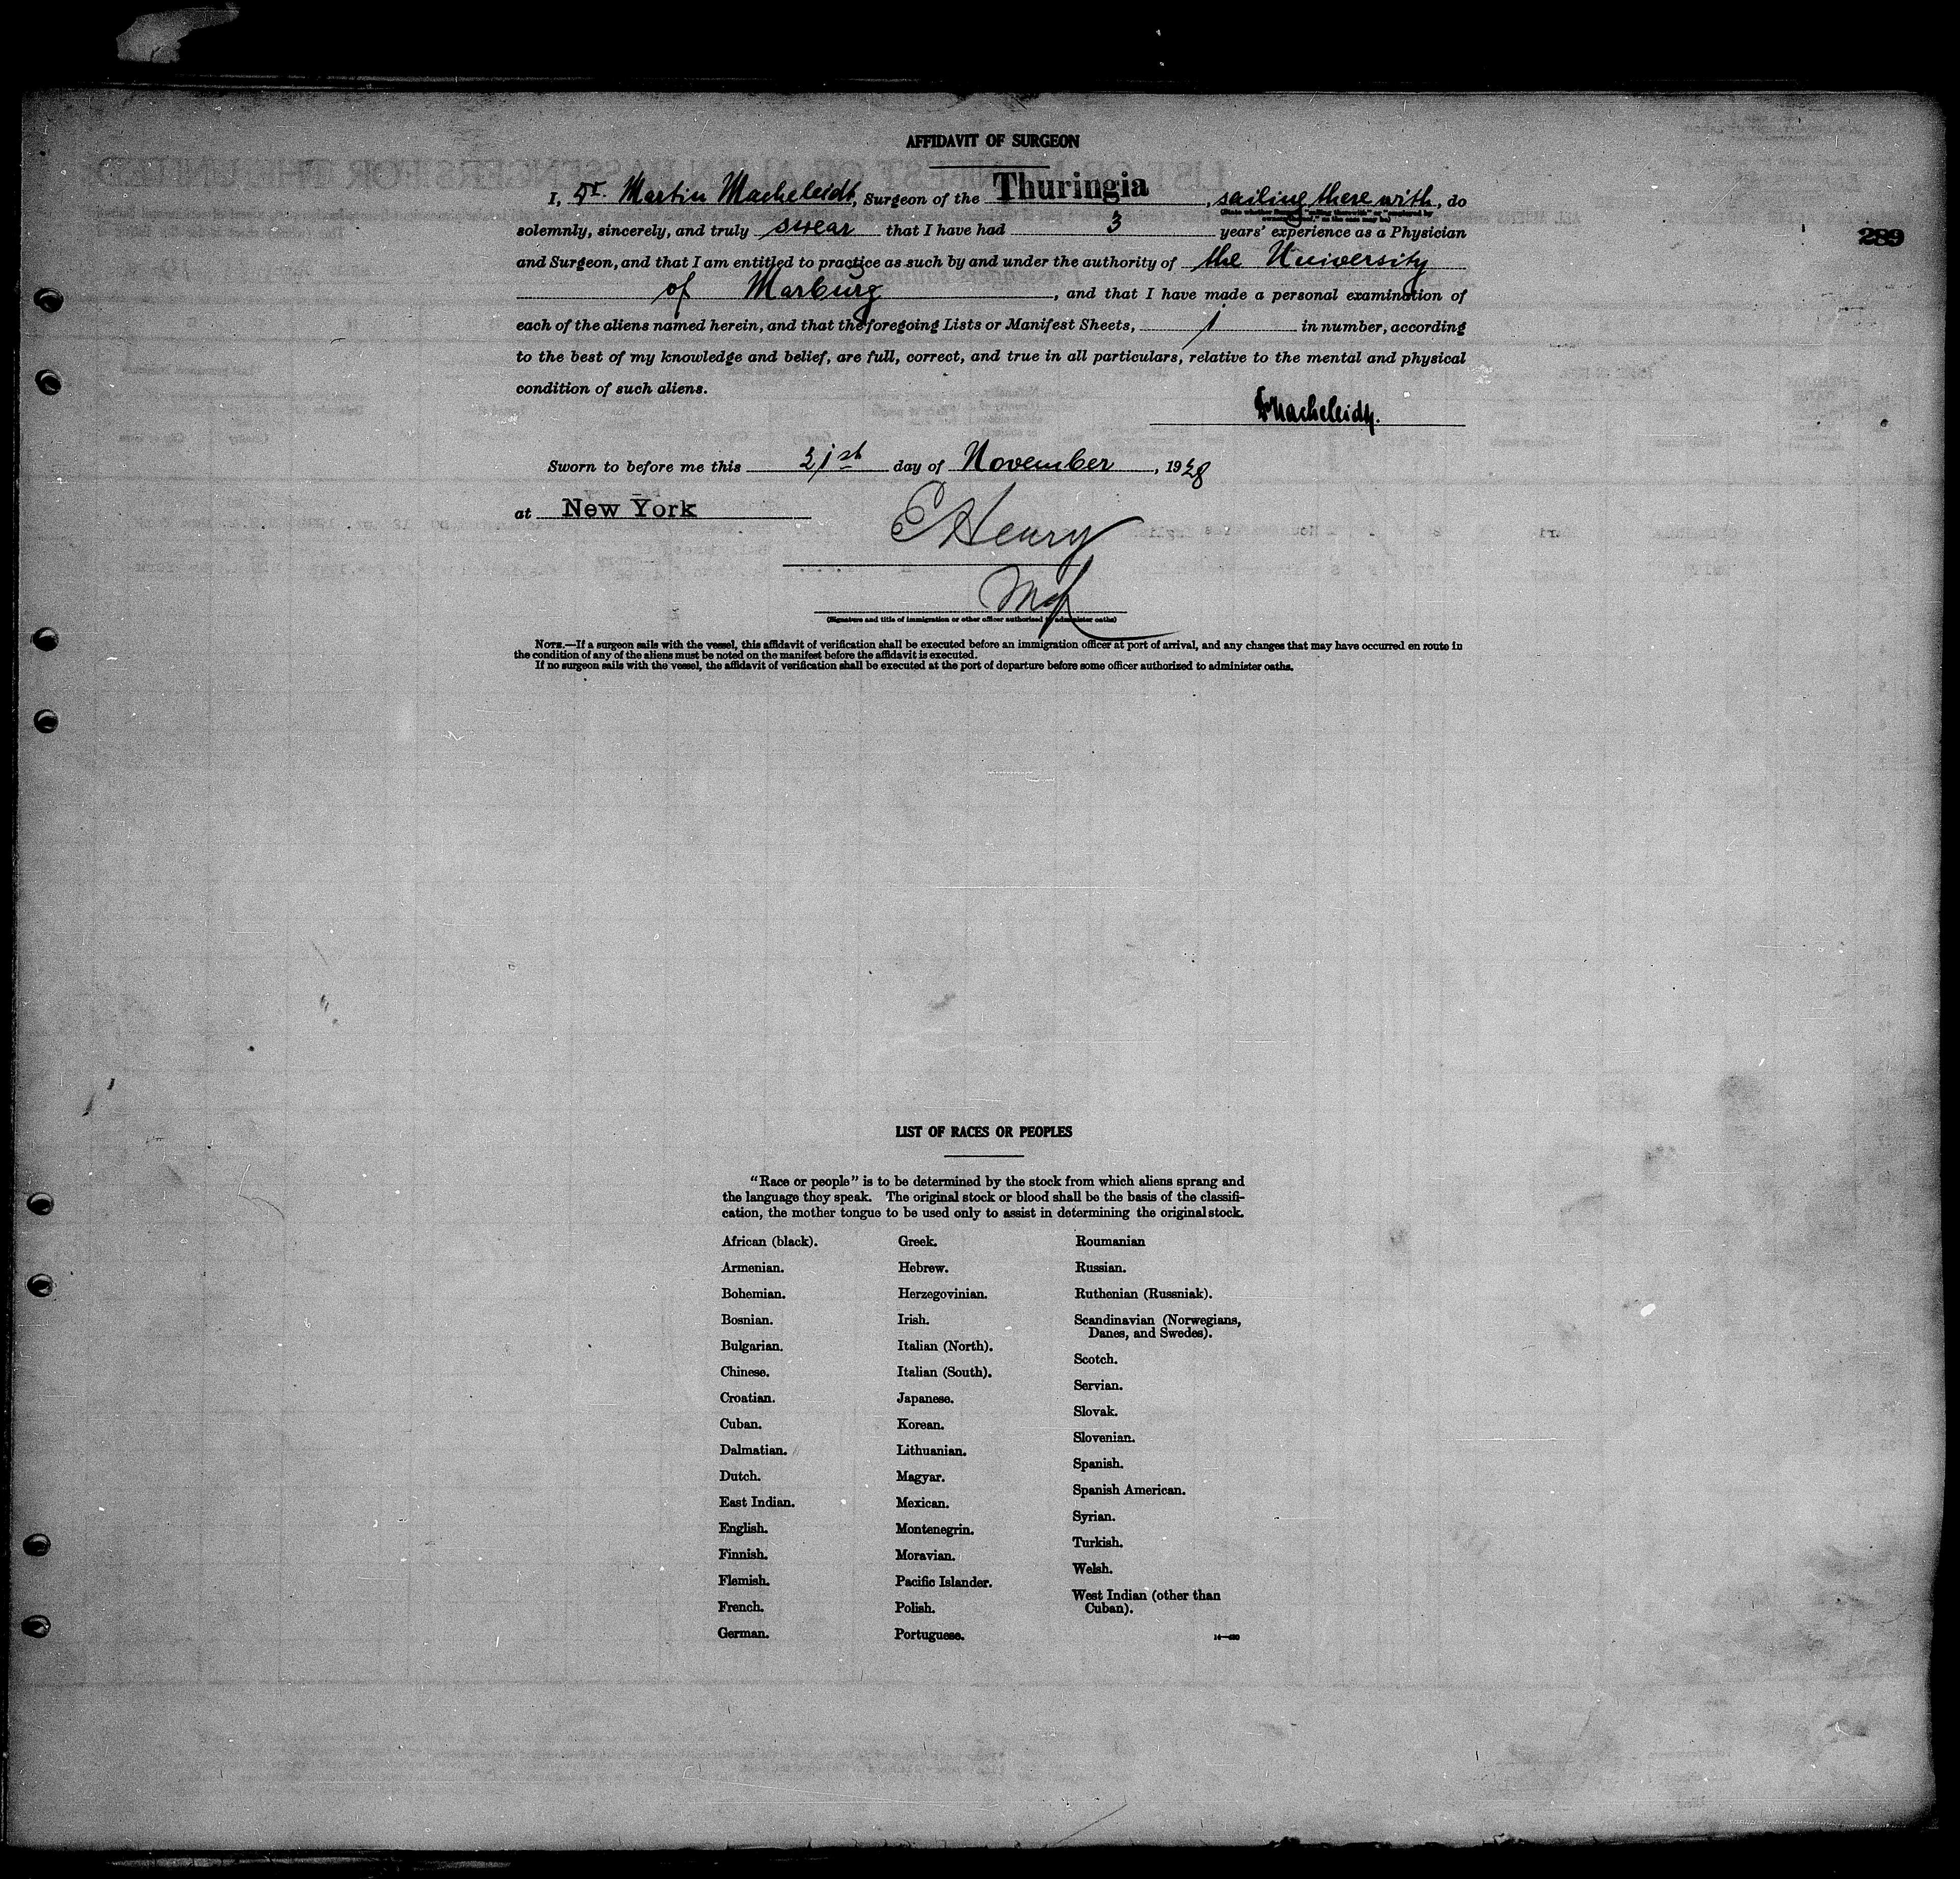 AFFIDAVIT OF SURGEON
289
I, Dr. Martin Macheleidt, Surgeon of the Thuringia, sailing therewith, do
(State whether Surgeon "sailing therewith" or "employed by
owners thereof," as the case may be)
solemnly, sincerely, and truly swear that I have had 3 years' experience as a Physician
and Surgeon, and that I am entitled to practice as such by and under the authority of the University
of Marburg, and that I have made a personal examination of
each of the aliens named herein, and that the foregoing Lists or Manifest Sheets, 1 in number, according
to the best of my knowledge and belief, are full, correct, and true in all particulars, relative to the mental and physical
condition of such aliens.
Dr Macheleidt.
Sworn to before me this 21st day of November, 1928
at New York
E Henry
(Signature and title of immigration or other officer authorized to administer oaths)
NOTE.—If a surgeon sails with the vessel, this affidavit of verification shall be executed before an immigration officer at port of arrival, and any changes that may have occurred en route in
the condition of any of the aliens must be noted on the manifest before the affidavit is executed.
If no surgeon sails with the vessel, the affidavit of verification shall be executed at the port of departure before some officer authorized to administer oaths.
LIST OF RACES OR PEOPLES
"Race or people" is to be determined by the stock from which aliens sprang and
the language they speak. The original stock or blood shall be the basis of the classifi-
cation, the mother tongue to be used only to assist in determining the original stock.
African (black).
Armenian.
Bohemian.
Bosnian.
Bulgarian.
Chinese.
Croatian.
Cuban.
Dalmatian.
Dutch.
East Indian.
English.
Finnish.
Flemish.
French.
German.
Greek.
Hebrew.
Herzegovinian.
Irish.
Italian (North).
Italian (South).
Japanese.
Korean.
Lithuanian.
Magyar.
Mexican.
Montenegrin.
Moravian.
Pacific Islander.
Polish.
Portuguese.
Roumanian
Russian.
Ruthenian (Russniak).
Scandinavian (Norwegians,
Danes, and Swedes).
Scotch.
Servian.
Slovak.
Slovenian.
Spanish.
Spanish American.
Syrian.
Turkish.
Welsh.
West Indian (other than
Cuban).